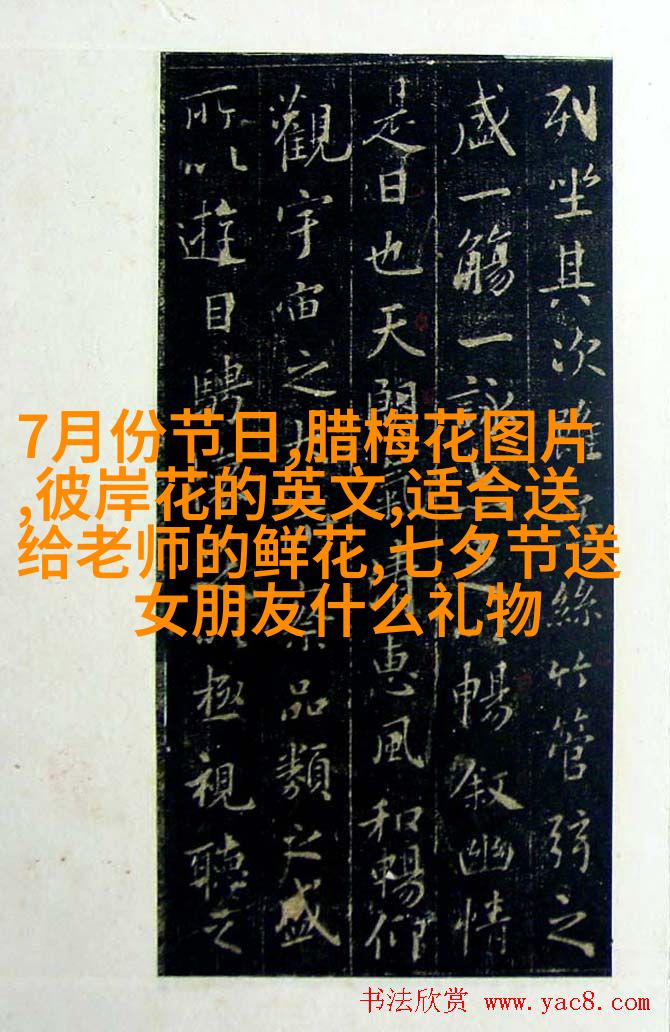 列坐其次雖絲竹管弦之
盛一觴一詠暢叙幽情
是日也天朗氣清惠風和暢仰
觀宇宙之大品類之盛
所以遊目騁極視聽之
7月份节日,腊梅花图片
,彼岸花的英文,适合送
给老师的鲜花,七夕节送
女朋友什么礼物
书法欣赏 www.yac8.com